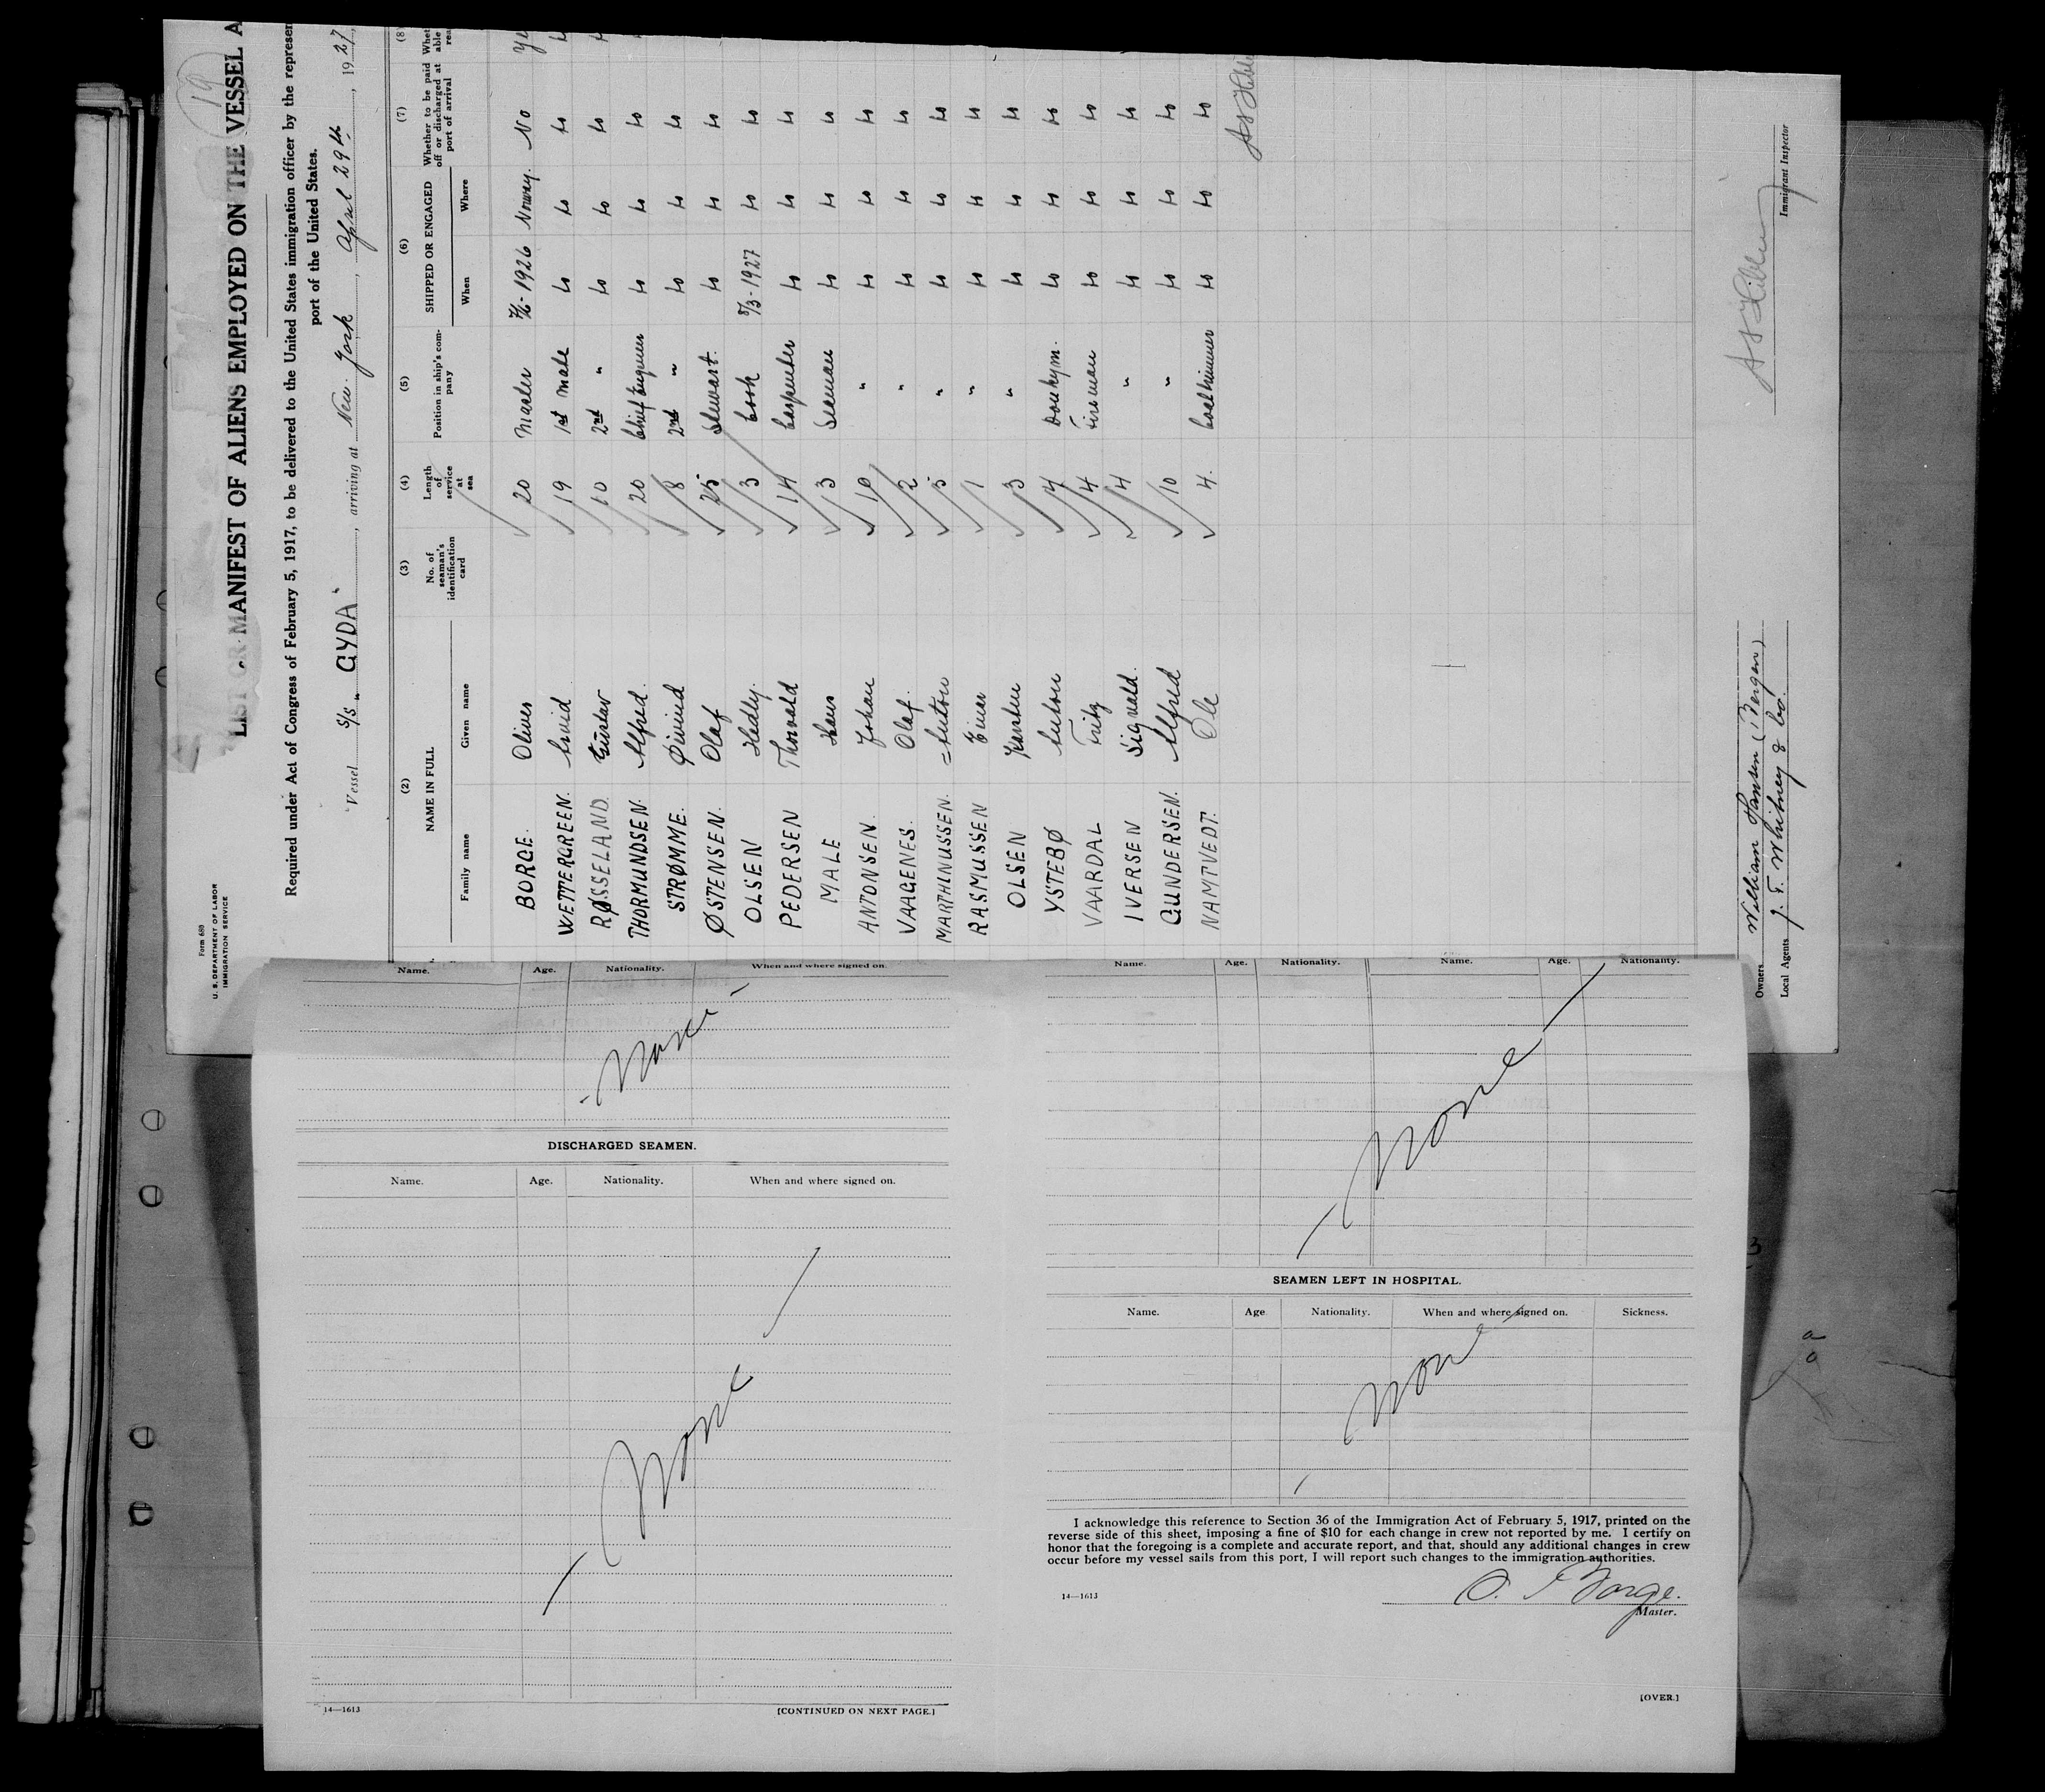 19
Form 680
U. S. DEPARTMENT OF LABOR
IMMIGRATION SERVICE
LIST OR MANIFEST OF ALIENS EMPLOYED ON THE VESSEL A
Required under Act of Congress of February 5, 1917, to be delivered to the United States immigration officer by the represen
port of the United States.
Vessel S/s „GYDA", arriving at New York, April 29th, 1927,
(2) (3) (4) (5) (6) (7) (8)
NAME IN FULL No. of seaman's identification card Length of service at sea Position in ship's company SHIPPED OR ENGAGED Whether to be paid off or discharged at port of arrival Whet able rea
Family name Given name When Where
BORGE. Oliver 20 Master 1926 Norway. No Ye
WETTERGREEN. Arvid 19 1st Mate to to to
RØSSELAND. Gustav 10 2nd " to to to
THORMUNDSEN. Alfred. 20 Chief Engineer to to to
STRØMME. Øivind 8 2nd " to to to
ØSTENSEN. Olaf 25 Stewart. to to to
OLSEN Hedly. 3 Cook 8/3-1927 to to
PEDERSEN Thorvald 14 Carpenter to to to
MALE Hans 3 Seaman to to to
ANTONSEN. Johan 10 " to to to
VAAGENES. Olaf. 2 " to to to
MARTHINUSSEN. Anton 5 " to to to
RASMUSSEN Einar 1 " to to to
OLSEN Karsten 3 " to to to
YSTEBØ Anton 4 Donkym. to to to
VAARDAL Fritz 4 Fireman to to to
IVERSEN Sigvald. 4 " to to to
GUNDERSEN. Alfred 10 " to to to
NAMTVEDT. Ole 4. Coaltrimmer to to to
Owners William Hansen (Bergen)
Local Agents J. F. Whitney & Co.
Immigrant Inspector
Name. Age. Nationality. When and where signed on.
None
DISCHARGED SEAMEN.
Name. Age. Nationality. When and where signed on.
None
14—1613 [CONTINUED ON NEXT PAGE.]
Name. Age. Nationality. Name. Age. Nationality.
None
SEAMEN LEFT IN HOSPITAL.
Name. Age Nationality. When and where signed on. Sickness.
None
I acknowledge this reference to Section 36 of the Immigration Act of February 5, 1917, printed on the
reverse side of this sheet, imposing a fine of $10 for each change in crew not reported by me. I certify on
honor that the foregoing is a complete and accurate report, and that, should any additional changes in crew
occur before my vessel sails from this port, I will report such changes to the immigration authorities.
14—1613
O. Borge.
Master.
[OVER.]